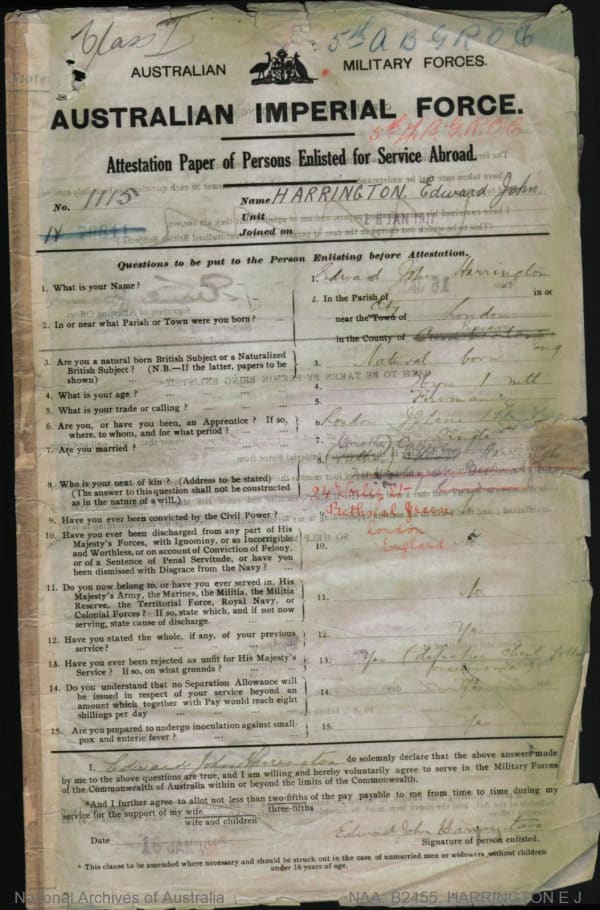 Class I
5th A B G R O C
AUSTRALIAN MILITARY FORCES.
AUSTRALIAN IMPERIAL FORCE.
5th A B G R O C
Attestation Paper of Persons Enlisted for Service Abroad.
No. 1115
Name HARRINGTON Edward John
Unit
Joined on
Questions to be put to the Person Enlisting before Attestation.
1. What is your Name? ... 1. Edward John Harrington
2. In or near what Parish or Town were you born? ... 2. In the Parish of in or
near the Town of City London
in the County of
3. Are you a natural born British Subject or a Naturalized
British Subject? (N.B.—If the latter, papers to be
shown) 3. Natural born
4. What is your age? 4.
5. What is your trade or calling? 5. Fireman
6. Are you, or have you been, an Apprentice? If so,
where, to whom, and for what period? 6. London
7. Are you married? 7. Single
8. Who is your next of kin? (Address to be stated)
(The answer to this question shall not be construed
as in the nature of a will.) 8. (Mother)
Bethnal Green
London
England
9. Have you ever been convicted by the Civil Power? 9.
10. Have you ever been discharged from any part of His
Majesty's Forces, with Ignominy, or as Incorrigible
and Worthless, or on account of Conviction of Felony,
or of a Sentence of Penal Servitude, or have you
been dismissed with Disgrace from the Navy? 10. No
11. Do you now belong to, or have you ever served in, His
Majesty's Army, the Marines, the Militia, the Militia
Reserve, the Territorial Force, Royal Navy, or
Colonial Forces? If so, state which, and if not now
serving, state cause of discharge. 11. No
12. Have you stated the whole, if any, of your previous
service? 12. Yes
13. Have you ever been rejected as unfit for His Majesty's
Service? If so, on what grounds? 13. Yes (Defective Chest
14. Do you understand that no Separation Allowance will
be issued in respect of your service beyond an
amount which together with Pay would reach eight
shillings per day 14. Yes
15. Are you prepared to undergo inoculation against small-
pox and enteric fever? 15. Yes
I, Edward John Harrington do solemnly declare that the above answers made
by me to the above questions are true, and I am willing and hereby voluntarily agree to serve in the Military Forces
of the Commonwealth of Australia within or beyond the limits of the Commonwealth.
*And I further agree to allot not less than two-fifths of the pay payable to me from time to time during my
three-fifths
service for the support of my wife
wife and children
Edward John Harrington
Date Signature of person enlisted.
* This clause to be amended where necessary and should be struck out in the case of unmarried men or widowers without children
under 18 years of age.
National Archives of Australia NAA: B2455, HARRINGTON E J